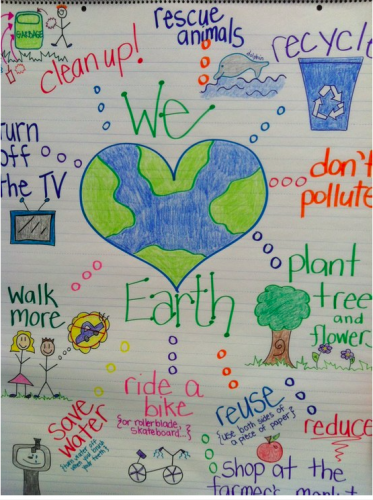 GARBAGE
clean up!
rescue
animals
dolphin
recycle
We
turn
off
the TV
don't
pollute
Earth
plant
tree
and
flower
walk
more
ride a
bike
{or rollerblade,
skateboard...}
save
water
{turn water off
when you brush
your teeth}
reuse
{use both sides of
a piece of paper}
reduce
shop at the
farmer's market